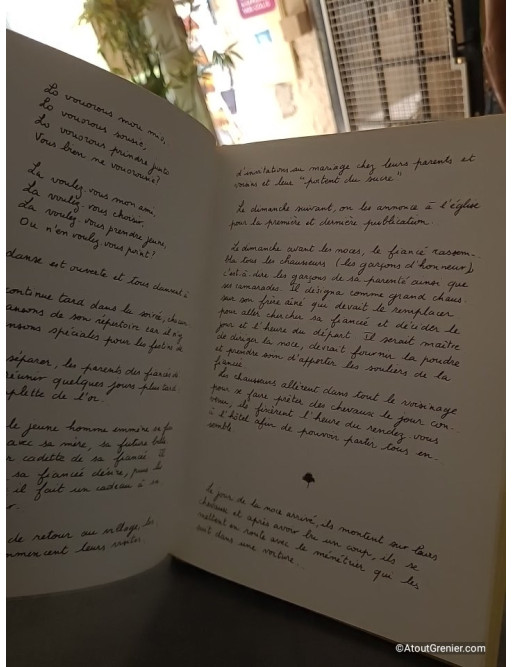 La vouorous mon mi,
La vouorous sousie,
La vouorous prindre junta
Vous bien ne vouorous?
La voulez-vous mon ami,
La voulez-vous choisir,
La voulez-vous prendre jeune,
Ou n'en voulez-vous point?
danse est ouverte et tous dansent à
continue tard dans la soirée, chacun
chansons de son répertoire car il n'y
spéciales pour les festins de
séparer, les parents des fiancés de
réunir quelques jours plus tard
complète de l'or.
le jeune homme emmène sa fian
avec sa mère, sa future belle
cadette de sa fiancée. Il
sa fiancée désire, puis le
il fait un cadeau à sa
de retour au village, les
commencent leurs visites.
d'invitations au mariage chez leurs parents et
voisins et leur "portent du sucre"
Le dimanche suivant, on les annonce à l'église
pour la première et dernière publication.
Le dimanche avant les noces, le fiancé rassem-
bla tous les chausseurs (les garçons d'honneur)
c'est-à-dire les garçons de sa parenté ainsi que
ses camarades. Il désigna comme grand chaus.
seur son frère aîné qui devait le remplacer
pour aller chercher sa fiancée et décider le
jour et l'heure du départ. Il serait maître
de diriger la noce, devrait fournir la poudre
et prendre soin d'apporter les souliers de la
fiancée.
Les chausseurs allèrent dans tout le voisinage
pour se faire prêter des chevaux le jour con-
venu, ils fixèrent l'heure du rendez-vous
à l'hôtel afin de pouvoir partir tous en-
semble
Le jour de la noce arrivé, ils montent sur leurs
chevaux et après avoir bu un coup, ils se
mettent en route avec le ménétrier qui les
suit dans une voiture...
©AtoutGrenier.com